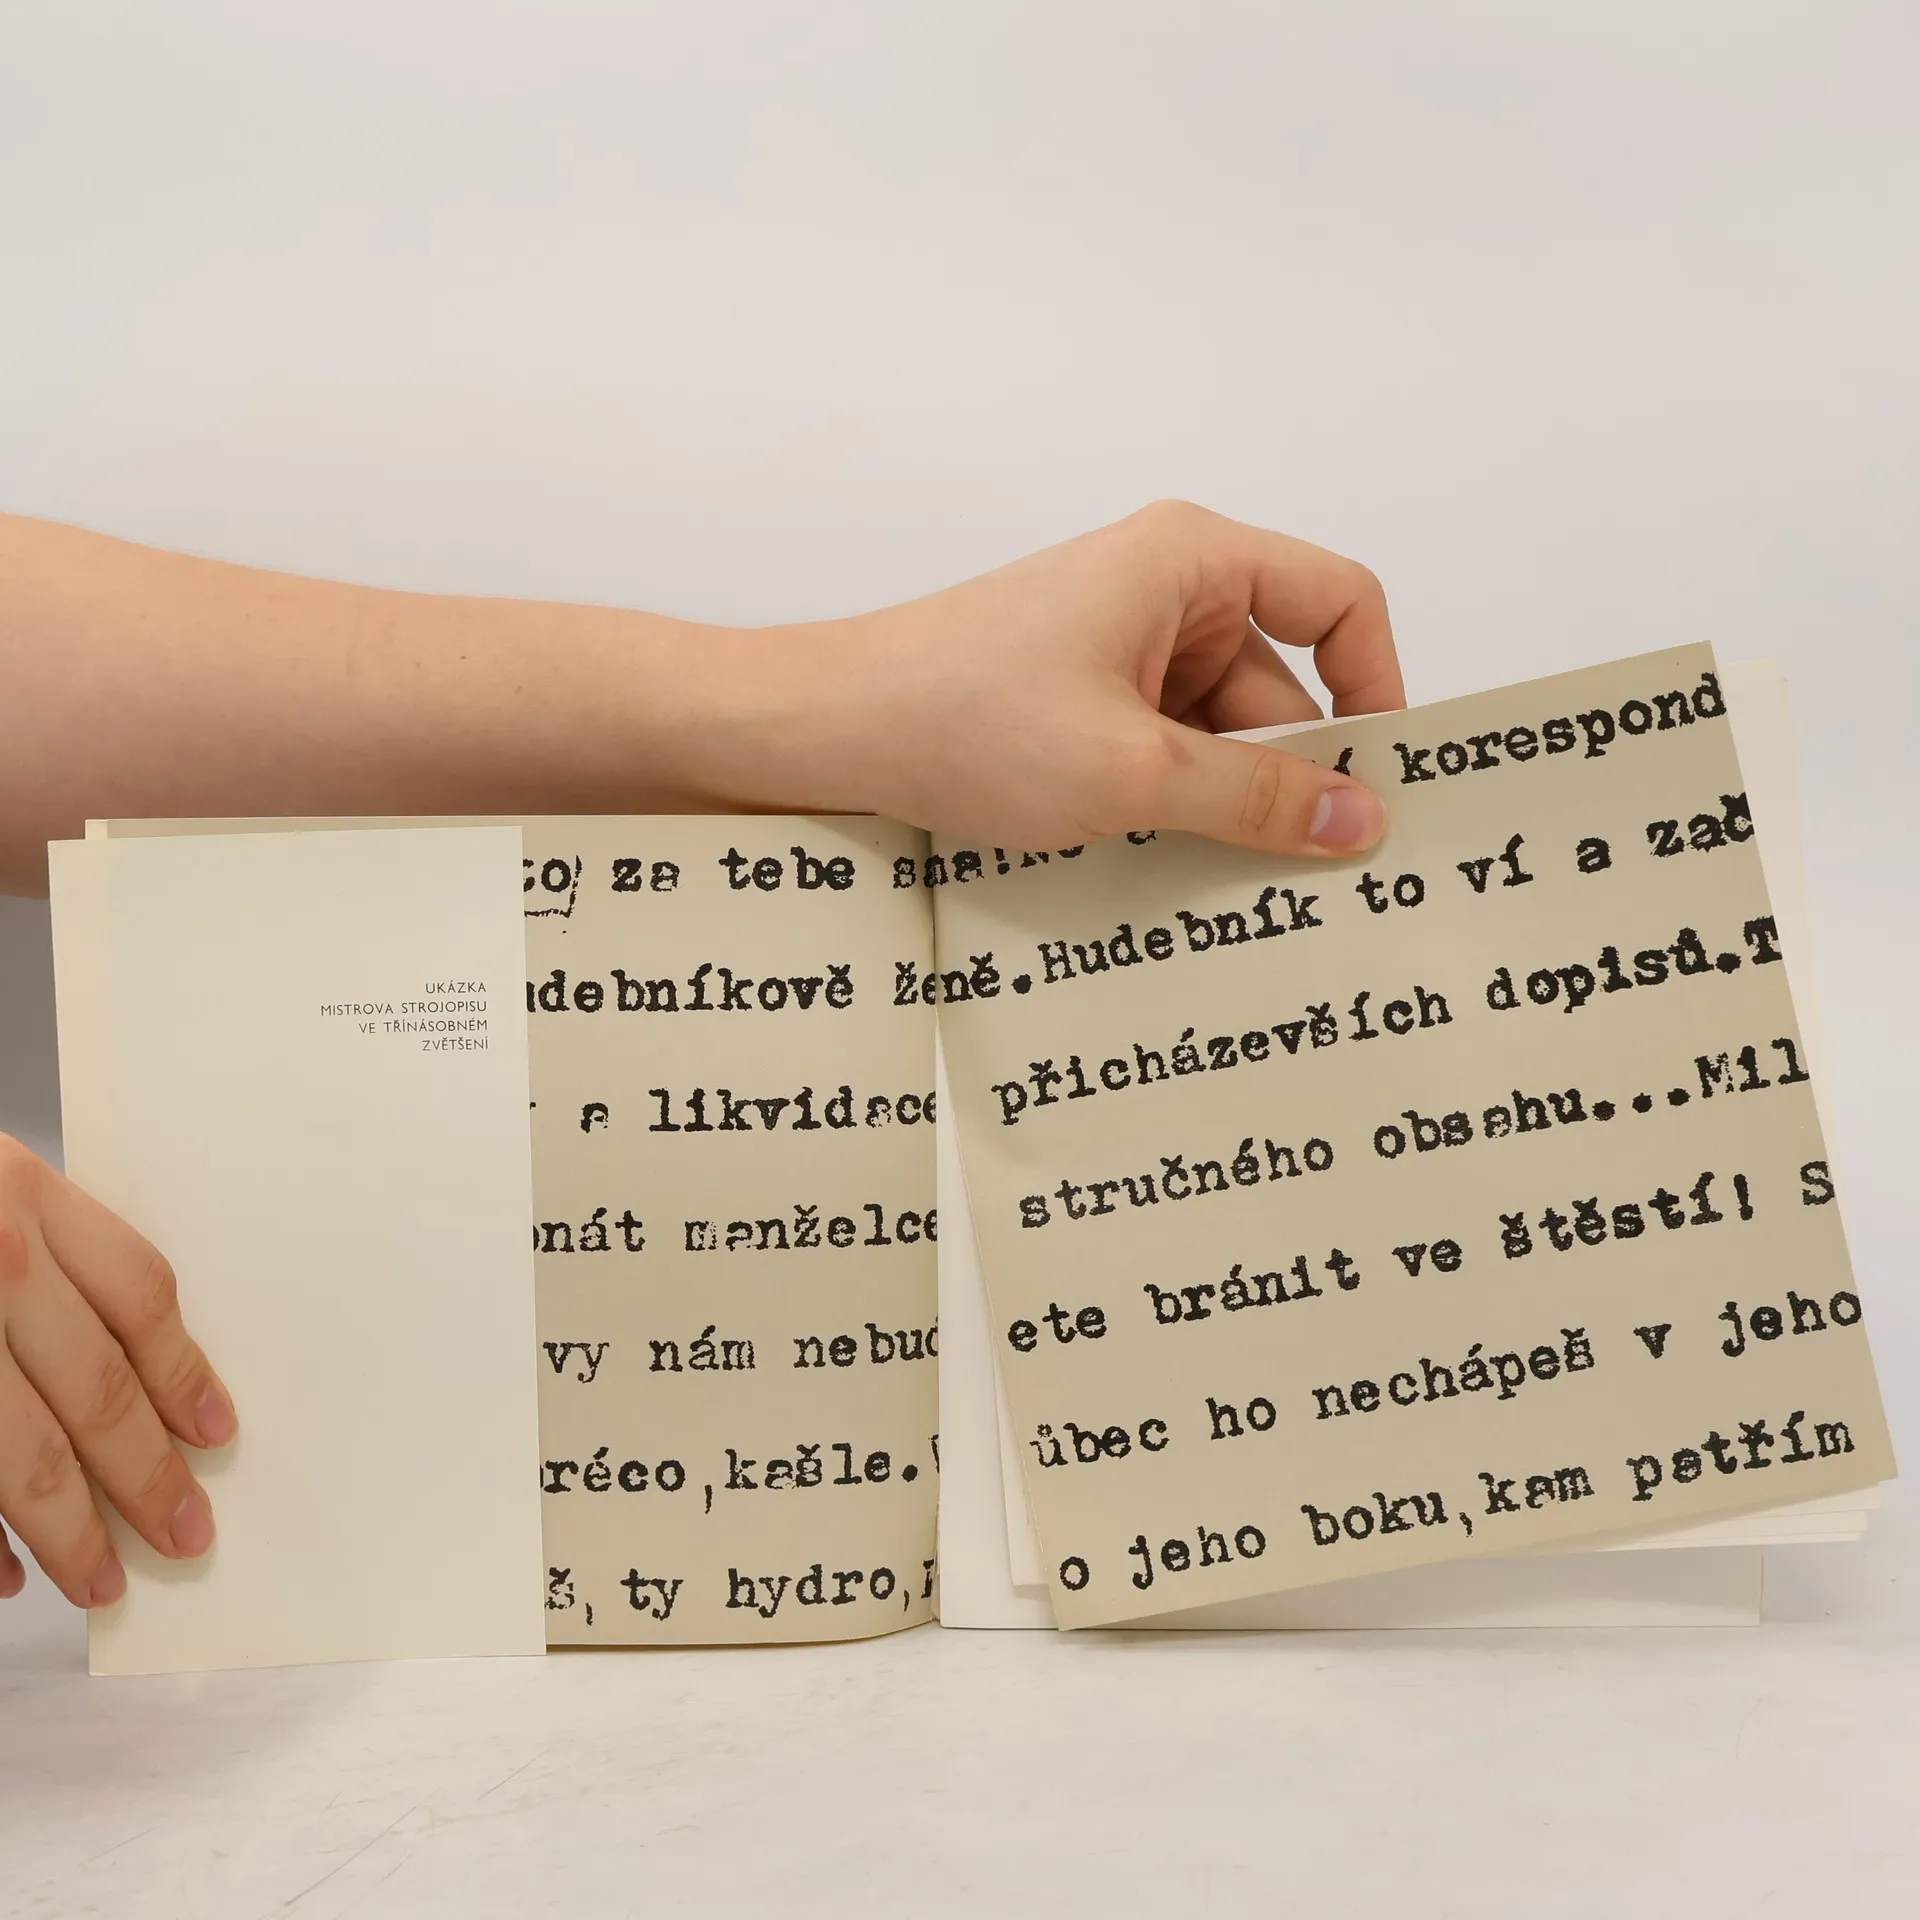 UKÁZKA
MISTROVA STROJOPISU
VE TŘÍNÁSOBNÉM
ZVĚTŠENÍ
to za tebe
udebníkově ženě.
a likvidace
onát manželce
vy nám nebuď
préco,kašle.
š, ty hydro,
í korespond
Hudebník to ví a zač
přicházevších dopisů.T
stručného obsahu...Mil
ete bránit ve štěstí! S
ůbec ho nechápeš v jeho
o jeho boku,kam patřím